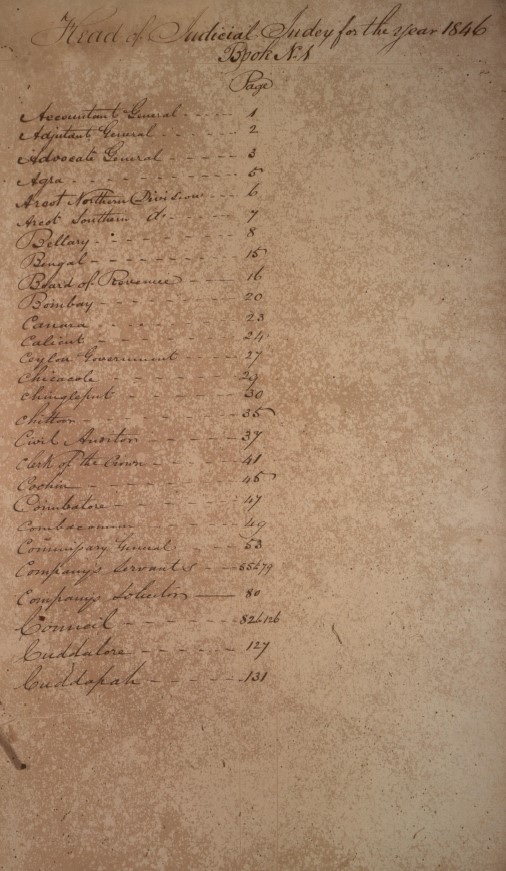 Head of Judicial Indey for the year 1846
Book No 1
Page
Accountant General - - - - 1
Adjutant General - - - - 2
Advocate General - - - - 3
Agra - - - - 5
Arcot Northern Division - - 6
Arcot Southern do - - - 7
Bellary - - - - 8
Bengal - - - - 15
Board of Revenue - - - - 16
Bombay - - - - 20
Canara - - - - 23
Calicut - - - - 24
Ceylon Government - - - - 27
Chicacole - - - - 29
Chingleput - - - - 30
Chittoor - - - - 35
Civil Auditor - - - - 37
Clerk of the Crown - - - - 41
Cochin - - - - 45
Coimbatore - - - - 47
Combaconum - - - - 49
Commissary General - - - 53
Companys Servants - - - 55 & 79
Companys Solicitor —— 80
Council - - - - 82 & 126
Cuddalore - - - - 127
Cuddapah - - - - 131